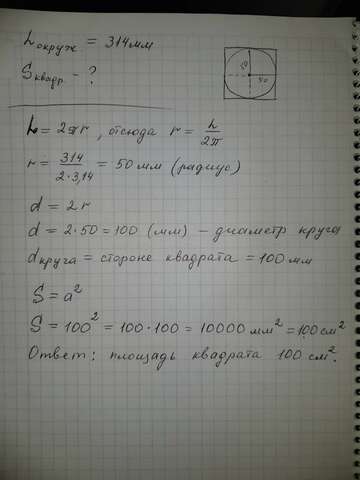 L окруж = 314 мм
S квадр. - ?
50
50
L = 2πr, отсюда r = L/2π
r = 314/2·3,14 = 50 мм (радиус)
d = 2r
d = 2·50 = 100 (мм) - диаметр круга
d круга = стороне квадрата = 100 мм
S = a²
S = 100² = 100·100 = 10000 мм² = 100 см²
Ответ: площадь квадрата 100 см².